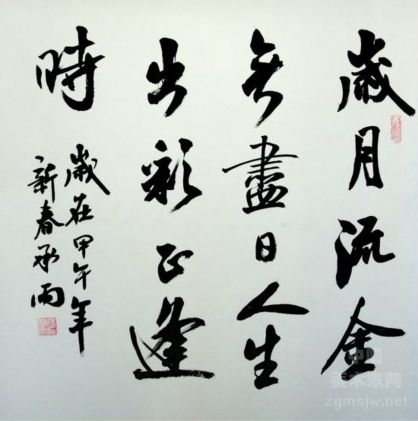 歲月流金
無盡日人生
出彩正逢
時
歲在甲午年
新春承雨
中国
美术家网
zgmsjw.net